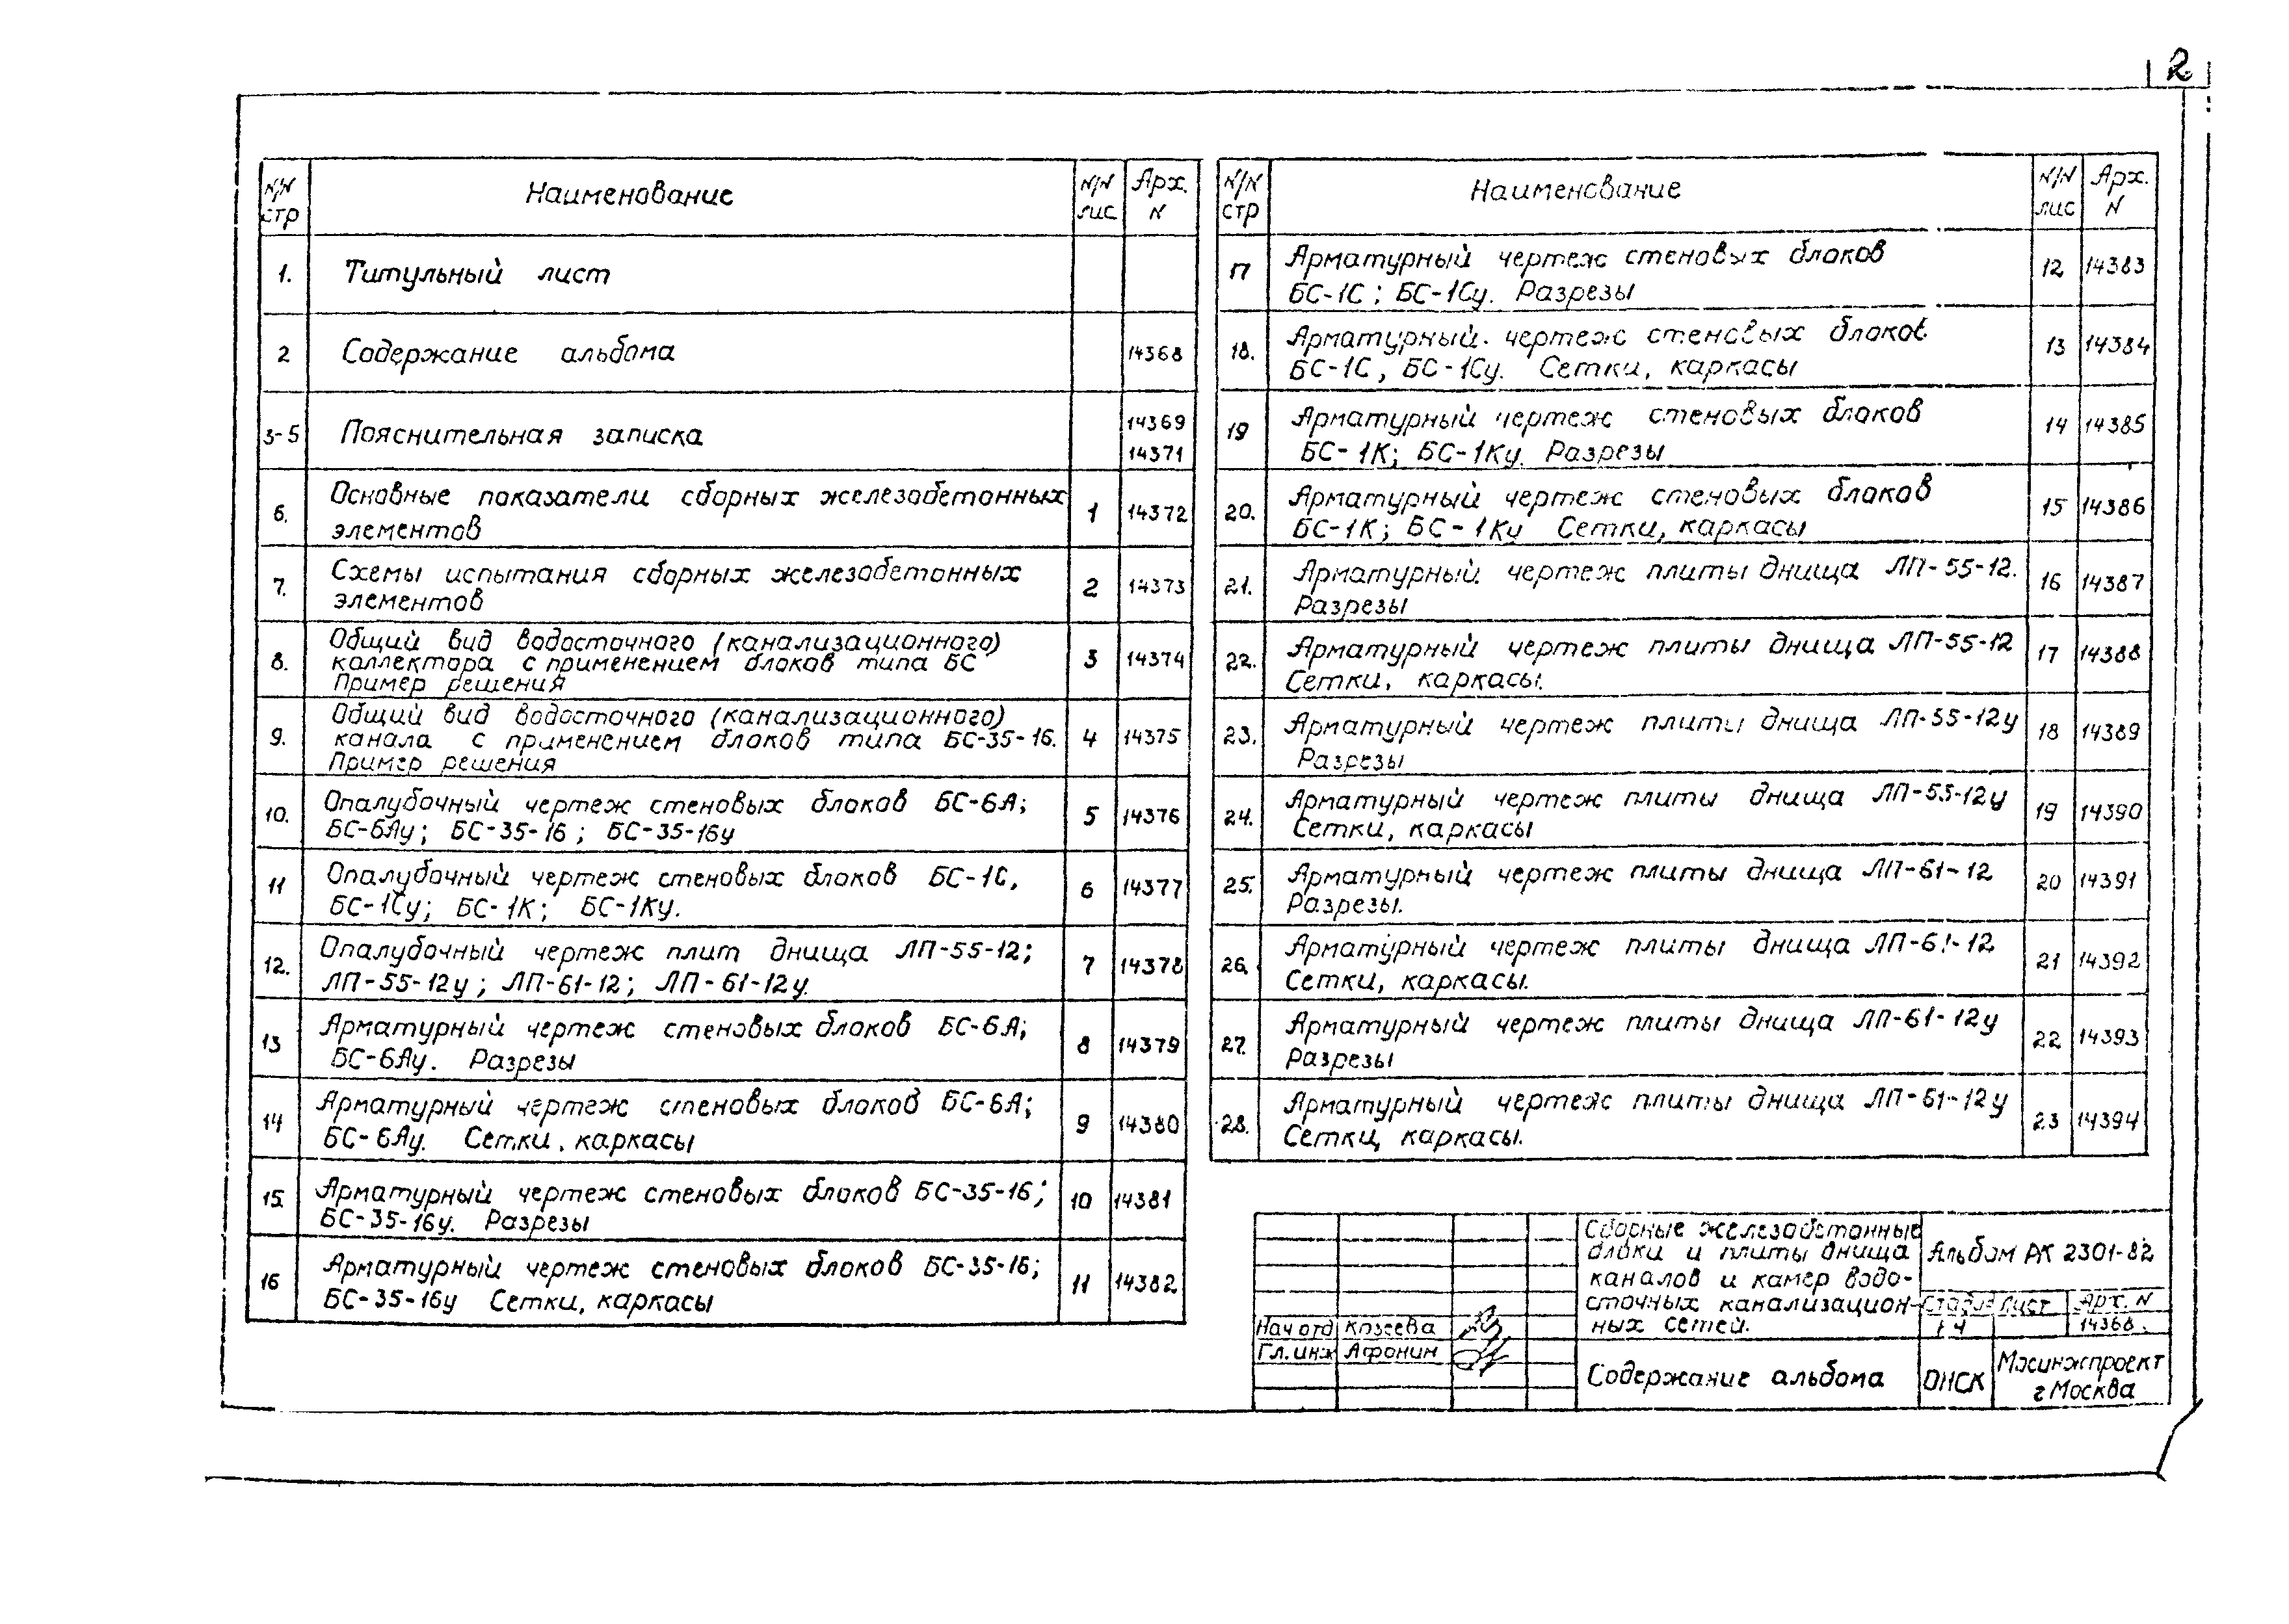 2
N/N стр Наименование N/N лис Арх. N
1. Титульный лист
2 Содержание альбома 14368
3-5 Пояснительная записка 14369
14371
6. Основные показатели сборных железобетонных 1 14372
элементов
7. Схемы испытания сборных железобетонных 2 14373
элементов
8. Общий вид водосточного (канализационного)
коллектора с применением блоков типа БС 3 14374
Пример решения
9. Общий вид водосточного (канализационного)
канала с применением блоков типа БС-35-16. 4 14375
Пример решения
10. Опалубочный чертеж стеновых блоков БС-6А; 5 14376
БС-6Ау; БС-35-16; БС-35-16у
11 Опалубочный чертеж стеновых блоков БС-1С, 6 14377
БС-1Су; БС-1К; БС-1Ку.
12. Опалубочный чертеж плит днища ЛП-55-12; 7 14378
ЛП-55-12у; ЛП-61-12; ЛП-61-12у.
13 Арматурный чертеж стеновых блоков БС-6А; 8 14379
БС-6Ау. Разрезы
14 Арматурный чертеж стеновых блоков БС-6А; 9 14380
БС-6Ау. Сетки, каркасы
15. Арматурный чертеж стеновых блоков БС-35-16; 10 14381
БС-35-16у. Разрезы
16 Арматурный чертеж стеновых блоков БС-35-16; 11 14382
БС-35-16у Сетки, каркасы
N/N стр Наименование N/N лис Арх. N
17 Арматурный чертеж стеновых блоков 12 14383
БС-1С; БС-1Су. Разрезы
18. Арматурный чертеж стеновых блоков 13 14384
БС-1С, БС-1Су. Сетки, каркасы
19 Арматурный чертеж стеновых блоков 14 14385
БС-1К; БС-1Ку. Разрезы
20. Арматурный чертеж стеновых блоков 15 14386
БС-1К; БС-1Ку Сетки, каркасы
21. Арматурный чертеж плиты днища ЛП-55-12. 16 14387
Разрезы
22. Арматурный чертеж плиты днища ЛП-55-12 17 14388
Сетки, каркасы.
23. Арматурный чертеж плиты днища ЛП-55-12у 18 14389
Разрезы
24. Арматурный чертеж плиты днища ЛП-55-12у 19 14390
Сетки, каркасы
25. Арматурный чертеж плиты днища ЛП-61-12 20 14391
Разрезы.
26. Арматурный чертеж плиты днища ЛП-61-12 21 14392
Сетки, каркасы.
27. Арматурный чертеж плиты днища ЛП-61-12у 22 14393
Разрезы
28. Арматурный чертеж плиты днища ЛП-61-12у 23 14394
Сетки, каркасы.
Сборные железобетонные
блоки и плиты днища
каналов и камер водо-
сточных канализацион-
ных сетей.
Альбом РК 2301-82
Стадия Лист Арх. N
14368
Нач отд Козеева
Гл. инж Афонин
Содержание альбома
ОНСК
Мосинжпроект
г Москва